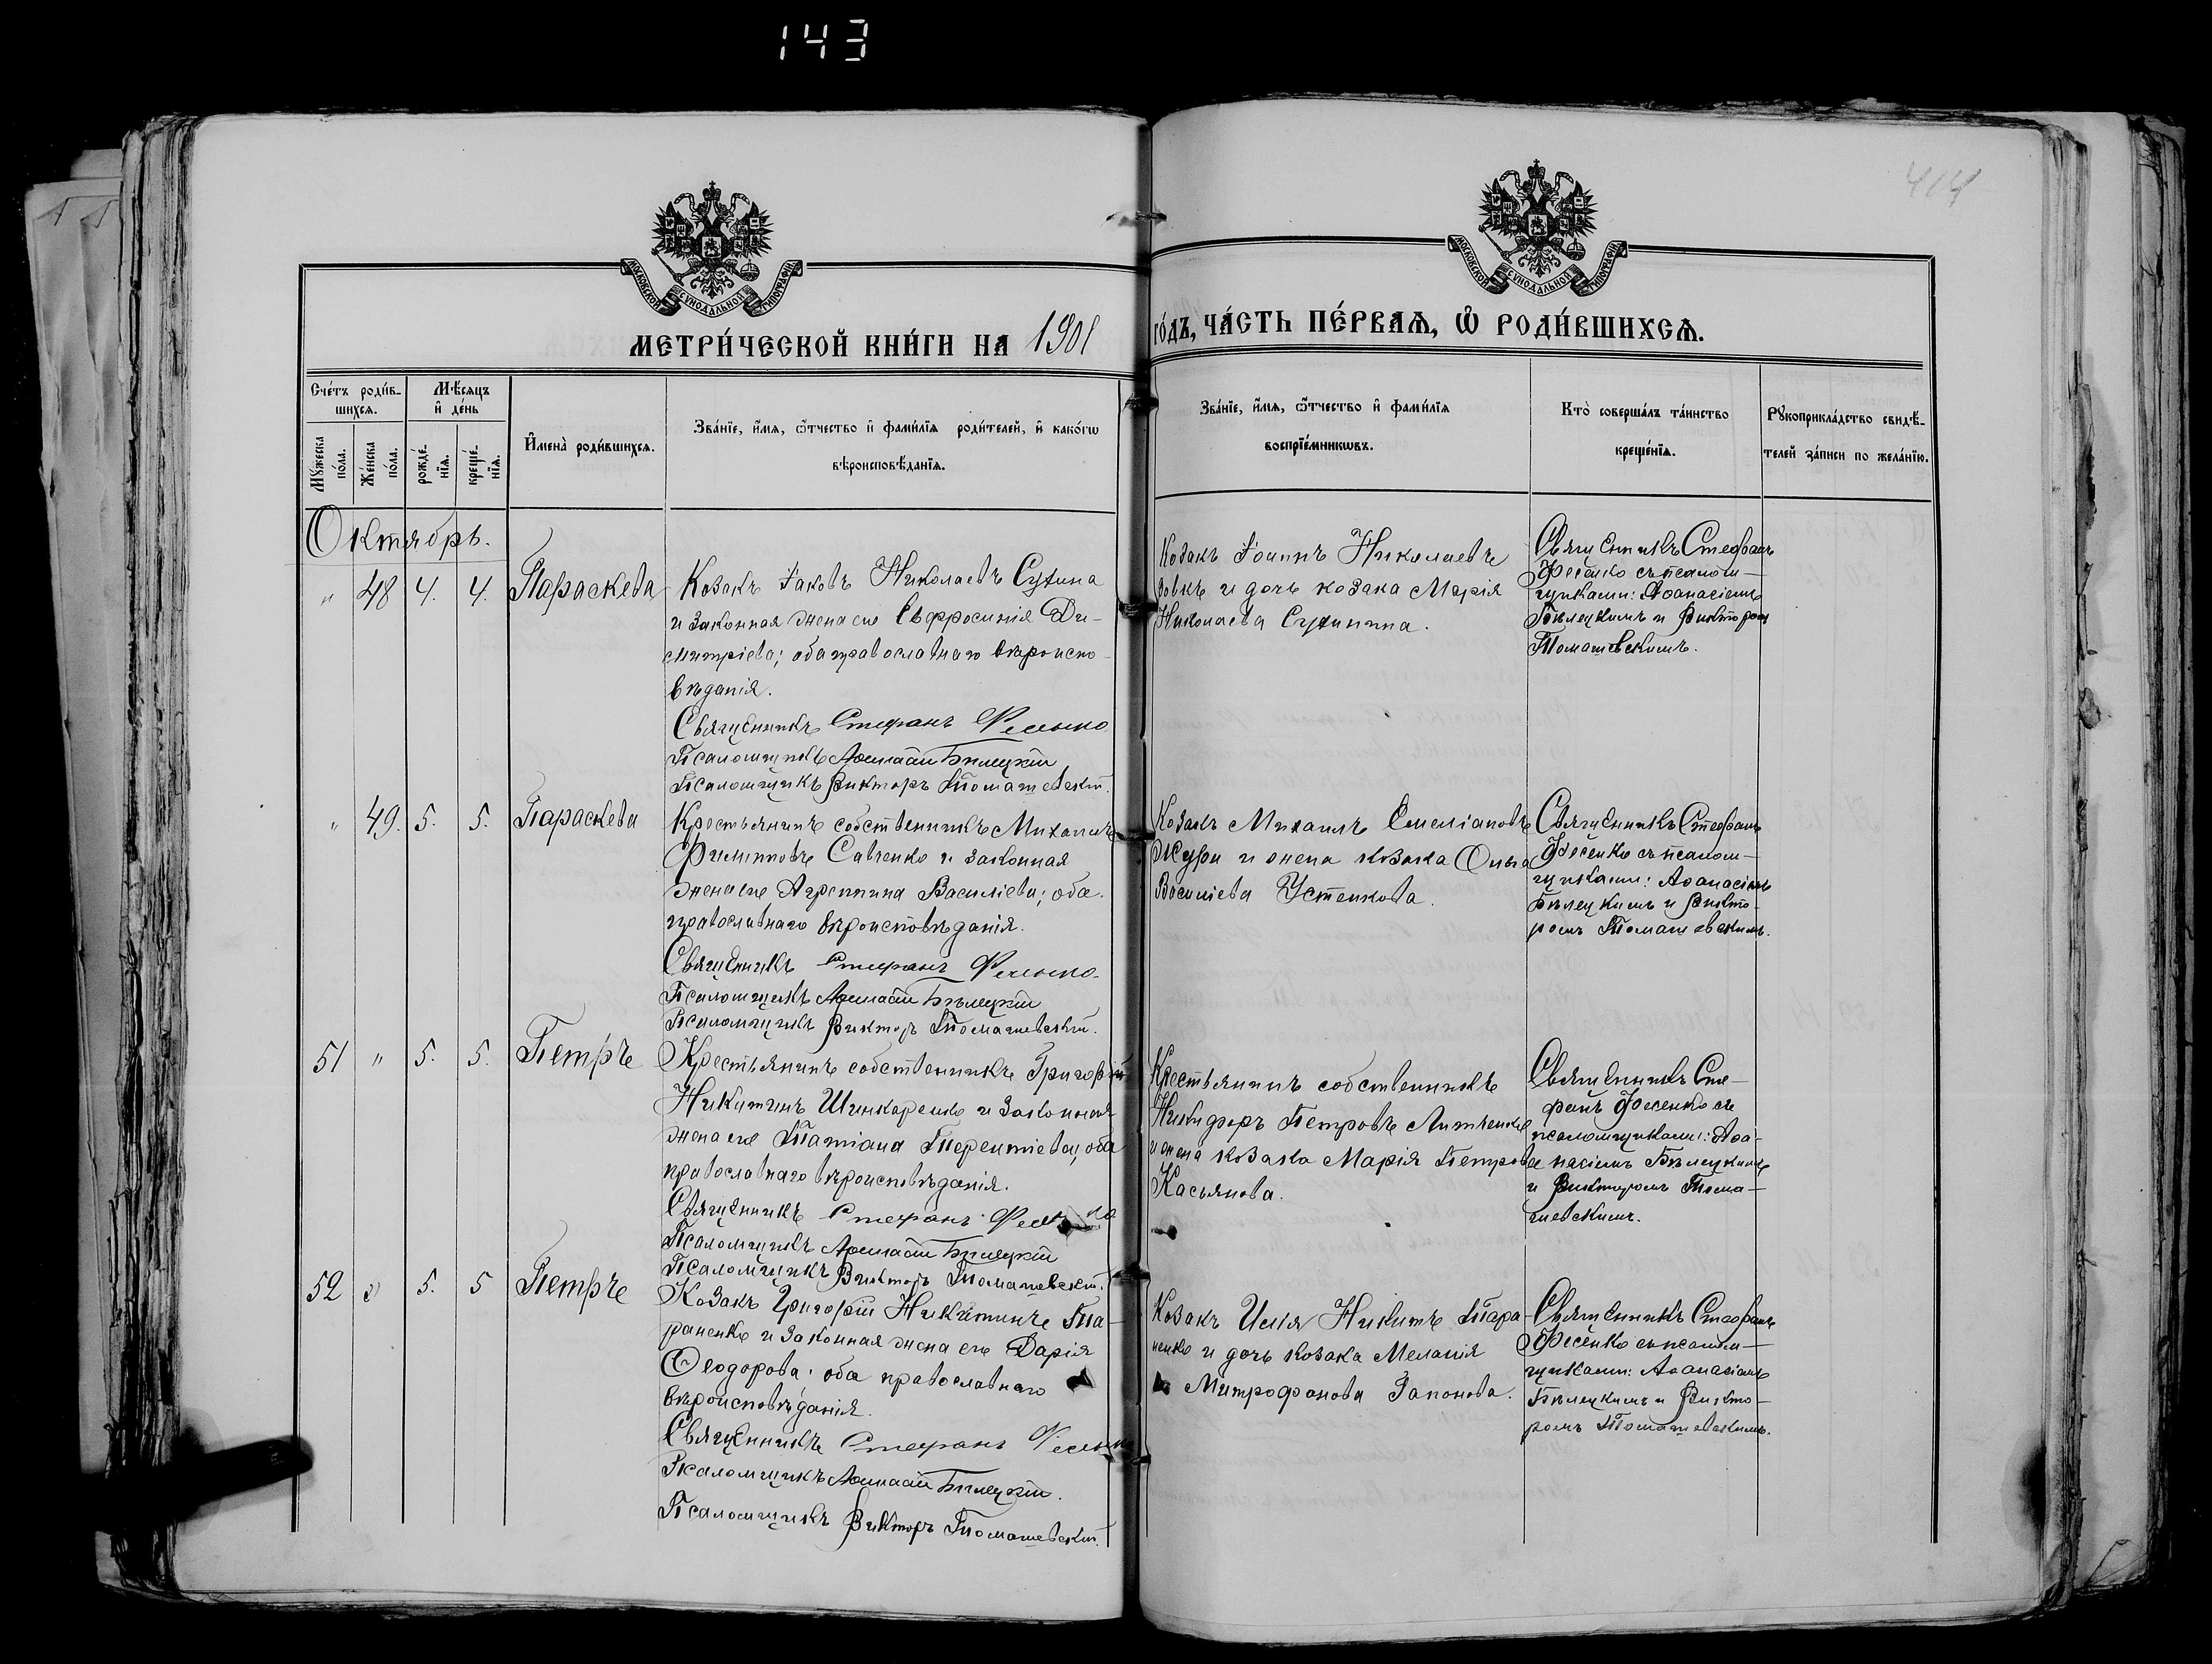 143
414
МОСКОВСКОЙ СѴНОДАЛЬНОЙ ТИПОГРАФІИ
МОСКОВСКОЙ СѴНОДАЛЬНОЙ ТИПОГРАФІИ
МЕТРИ́ЧЕСКОЙ КНИ́ГИ НА 1901
ГО́ДЪ, ЧА́СТЬ ПЕ́РВАѦ, Ѽ РОДИ́ВШИХСѦ.
Сче́тъ роди́в-
шихсѧ.
Мꙋ́жеска
по́ла.
Же́нска
по́ла.
Мѣ́сѧцъ
и҆ де́нь
рожде́-
нїѧ.
креще́-
нїѧ.
И҆мена̀ роди́вшихсѧ.
Зва́нїе, и҆́мѧ, ѻ҆́тчество и҆ фами́лїѧ роди́телей, и҆ како́гѡ
вѣроисповѣ́данїѧ.
Зва́нїе, и҆́мѧ, ѻ҆́тчество и҆ фами́лїѧ
воспрїе́мникѡвъ.
Кто̀ соверша́лъ та́инство
креще́нїѧ.
Рꙋкоприкла́дство свидѣ́-
телей за́писи по жела́нїю.
Октябрь.
" 48 4. 4. Параскева
Козакъ Іаковъ Николаевъ Сухина
и законная жена его Евфросинія Ди-
митріева; оба православнаго вѣроиспо-
вѣданія.
Священникъ Стефанъ Фесенко
Псаломщикъ Афанасій Бѣлецкій
Псаломщикъ Викторъ Томашевскій.
Козакъ Іоаннъ Николаевъ
и дочь козака Марія
Николаева Сухинина.
Священникъ Стефанъ
Фесенко съ псалом-
щиками: Аѳанасіемъ
Бѣлецкимъ и Викторомъ
Томашевскимъ.
" 49. 5. 5. Параскева
Крестьянинъ собственникъ Михаилъ
Филипповъ Савченко и законная
жена его Агреппина Василіева; оба
православнаго вѣроисповѣданія.
Священникъ Стефанъ Фесенко.
Псаломщикъ Афанасій Бѣлецкій
Псаломщикъ Викторъ Томашевскій.
Козакъ Михаилъ Емеліановъ
и жена козака Ольга
Василіева Устенкова.
Священникъ Стефанъ
Фесенко съ псалом-
щиками: Аѳанасіемъ
Бѣлецкимъ и Викто-
ромъ Томашевскимъ.
51 " 5. 5. Петръ
Крестьянинъ собственникъ Григорій
Никитинъ Шинкаренко и законная
жена его Татіана Терентіева; оба
православнаго вѣроисповѣданія.
Священникъ Стефанъ Фесенко
Псаломщикъ Афанасій Бѣлецкій
Псаломщикъ Викторъ Томашевскій.
Крестьянинъ собственникъ
Никифоръ Петровъ
и жена козака Марія Петрова
Касьянова.
Священникъ Сте-
фанъ Фесенко съ
псаломщиками: Аѳа-
насіемъ Бѣлецкимъ
и Викторомъ Тома-
шевскимъ.
52 " 5. 5 Петръ
Козакъ Григорій Никитинъ Та-
раненко и законная жена его Дарія
Ѳеодорова; оба православнаго
вѣроисповѣданія.
Священникъ Стефанъ Фесенко
Псаломщикъ Афанасій Бѣлецкій.
Псаломщикъ Викторъ Томашевскій.
Козакъ Илія Никитъ Тара-
ненко и дочь козака Меланія
Митрофанова Запонова.
Священникъ Стефанъ
Фесенко съ псалом-
щиками: Аѳанасіемъ
Бѣлецкимъ и Викто-
ромъ Томашевскимъ.